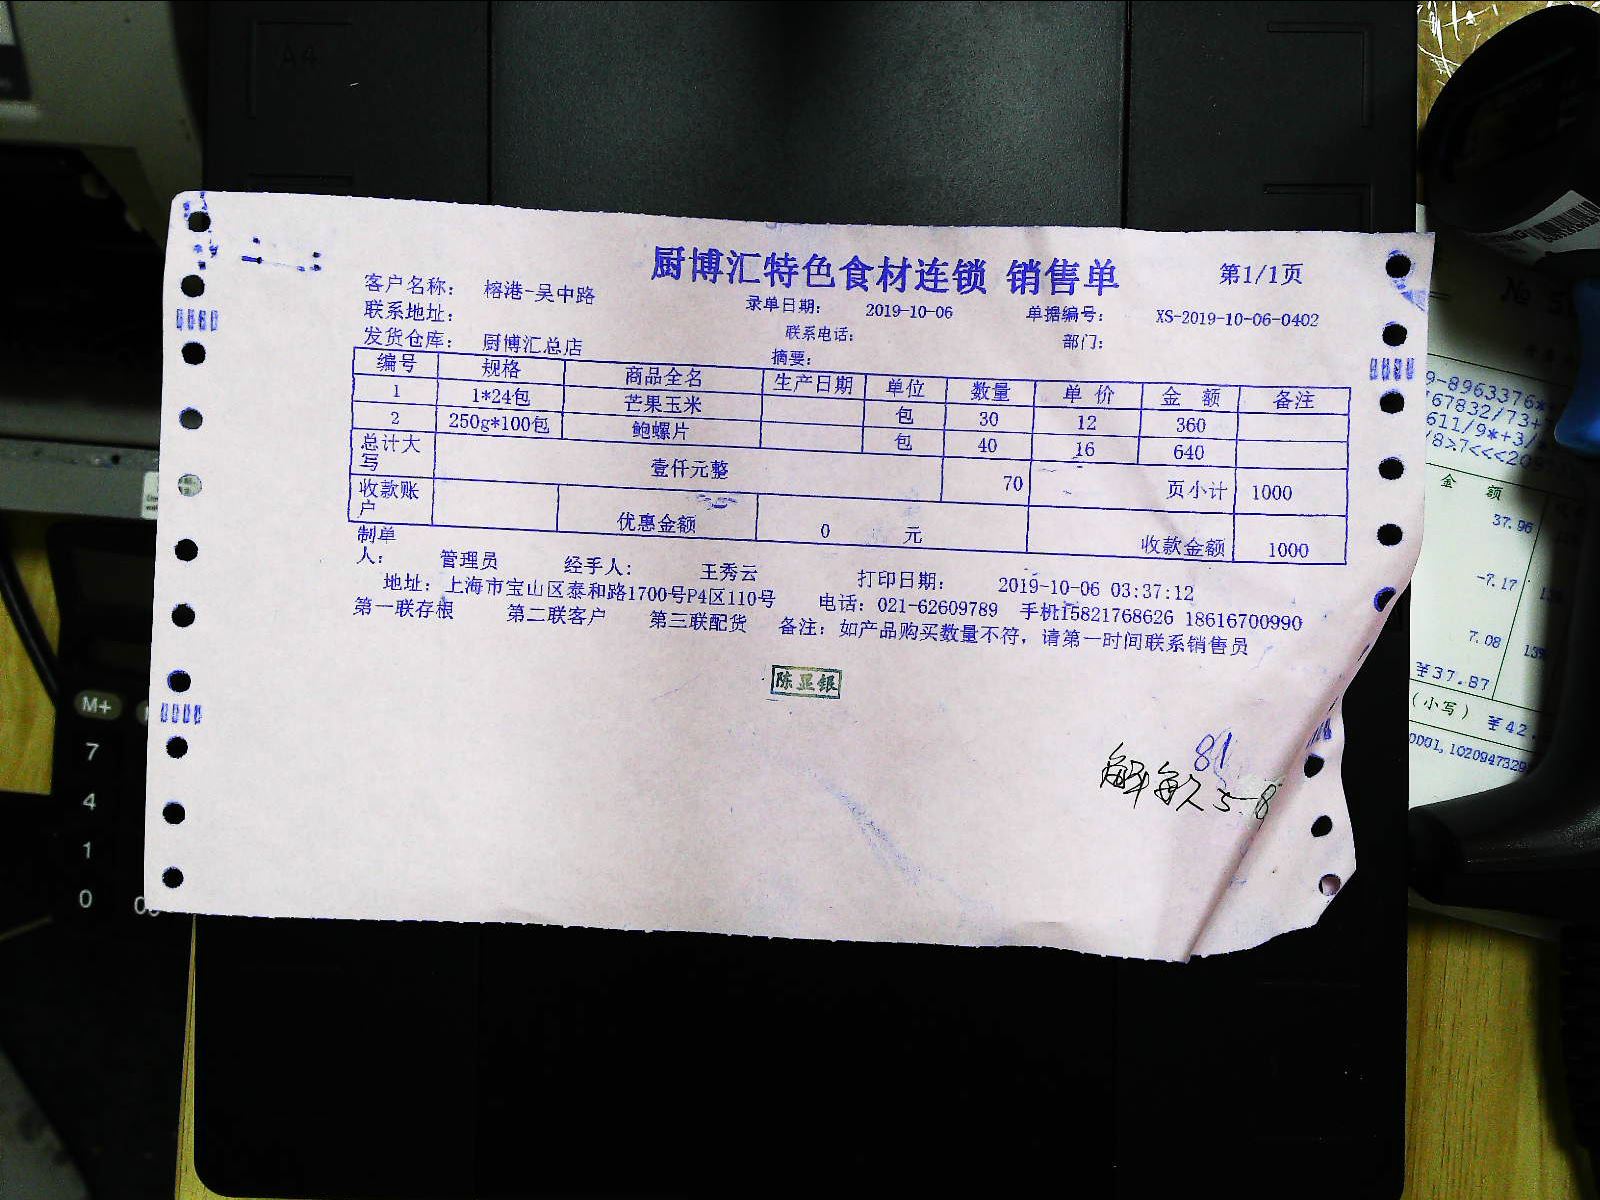 厨博汇特色食材连锁 销售单 第1/1页
客户名称： 榕港-吴中路 录单日期： 2019-10-06 单据编号： XS-2019-10-06-0402
联系地址： 联系电话： 部门：
发货仓库： 厨博汇总店 摘要：
编号 规格 商品全名 生产日期 单位 数量 单 价 金 额 备注
1 1*24包 芒果玉米 包 30 12 360
2 250g*100包 鲍螺片 包 40 16 640
总计大写 壹仟元整 70 页小计 1000
收款账户 优惠金额 0 元 收款金额 1000
制单人： 管理员 经手人： 王秀云 打印日期： 2019-10-06 03:37:12
地址：上海市宝山区泰和路1700号P4区110号 电话：021-62609789 手机15821768626 18616700990
第一联存根 第二联客户 第三联配货 备注：如产品购买数量不符，请第一时间联系销售员
陈显银
81
A4
M+
7
4
1
0
金 额
37.96
-7.17
7.08
¥37.87
(小写) ¥42.